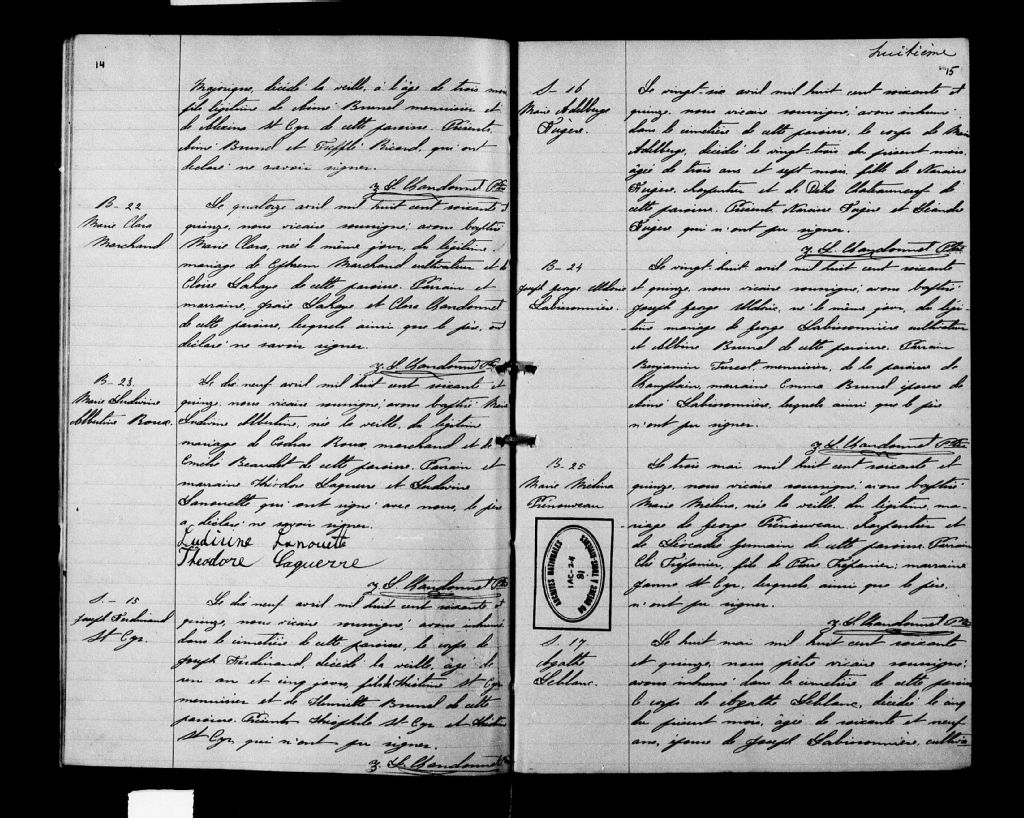 14
décédé la veille, à l'âge de trois mois
fils légitime de Aimé Brunel menuisier et
de St Cyr de cette paroisse. Présents
Aimé Brunel et Ricard, qui ont
déclaré ne savoir signer.
Chandonnet Ptre
B- 22
Marie Clara
Marchand
Le quatorze avril mil huit cent soixante et
quinze, nous vicaire soussigné, avons baptisé
Marie Clara, née le même jour, du légitime
mariage de Ephrem Marchand cultivateur et de
Eloise Lahaye de cette paroisse. Parrain et
marraine, Lahaye et Clara Chandonnet
de cette paroisse, lesquels ainsi que le père, ont
déclaré ne savoir signer.
Chandonnet Ptre
B- 23.
Marie Ludivine
Albertine Roux.
Le dix neuf avril mil huit cent soixante et
quinze, nous vicaire soussigné, avons baptisé Marie
Ludivine Albertine, née la veille, du légitime
mariage de Roux, marchand et de
Emelie Beaudet de cette paroisse. Parrain et
marraine Théodore Laguerre et Ludivine
Lanouette qui ont signé avec nous, le père
a déclaré ne savoir signer.
Ludivine Lanouette
Theodore Laguerre
Chandonnet Ptre
S.- 15
Joseph Ferdinand
St Cyr
Le dix neuf avril mil huit cent soixante et
quinze, nous vicaire soussigné, avons inhumé
dans le cimetière de cette paroisse, le corps de
Joseph Ferdinand, décédé la veille, âgé de
un an et cinq jours, fils de St Cyr
menuisier et de Henriette Brunel de cette
paroisse. Présents Théophile St Cyr et
St Cyr, qui n'ont pu signer.
Chandonnet Ptre
huitième
15
S- 16
Marie Adelberge
Fugère.
Le vingt-six avril mil huit cent soixante et
quinze, nous vicaire soussigné, avons inhumé
dans le cimetière de cette paroisse, le corps de Marie
Adelberge, décédée le vingt-trois du présent mois,
âgée de trois ans et sept mois, fille de Narcisse
Fugère, charpentier et de Châteauneuf de
cette paroisse. Présents, Narcisse Fugère et Léandre
Fugère qui n'ont pu signer.
Chandonnet Ptre
B- 24
Joseph George
Labissonnière.
Le vingt-huit avril mil huit cent soixante
et quinze, nous vicaire soussigné, avons baptisé
Joseph George né le même jour, du légi-
time mariage de George Labissonnière cultivateur
et Albine Brunel de cette paroisse. Parrain
Benjamin Turcot, menuisier, de la paroisse de
Champlain, marraine Emma Brunel épouse de
Aimé Labissonnière, lesquels ainsi que le père
n'ont pu signer.
Chandonnet Ptre
B. 25
Marie Melina
Prénouveau
Le trois mai mil huit cent soixante et
quinze, nous vicaire soussigné, avons baptisé
Marie Melina, née la veille du légitime ma-
riage de George Prénouveau charpentier et
de Léocadie Germain de cette paroisse. Parrain
Trépanier, fils de Trépanier; marraine
Jeanne St Cyr, lesquels ainsi que le père
n'ont pu signer.
Chandonnet Ptre
ARCHIVES NATIONALES
IAC-24
81
S. 17
Agathe
Leblanc.
Le huit mai mil huit cent soixante
et quinze, nous prêtre vicaire soussigné,
avons inhumé dans le cimetière de cette paroisse
le corps de Agathe Leblanc, décédée le cinq
du présent mois, âgée de soixante et neuf
ans, épouse de Joseph Labissonnière, cultiva